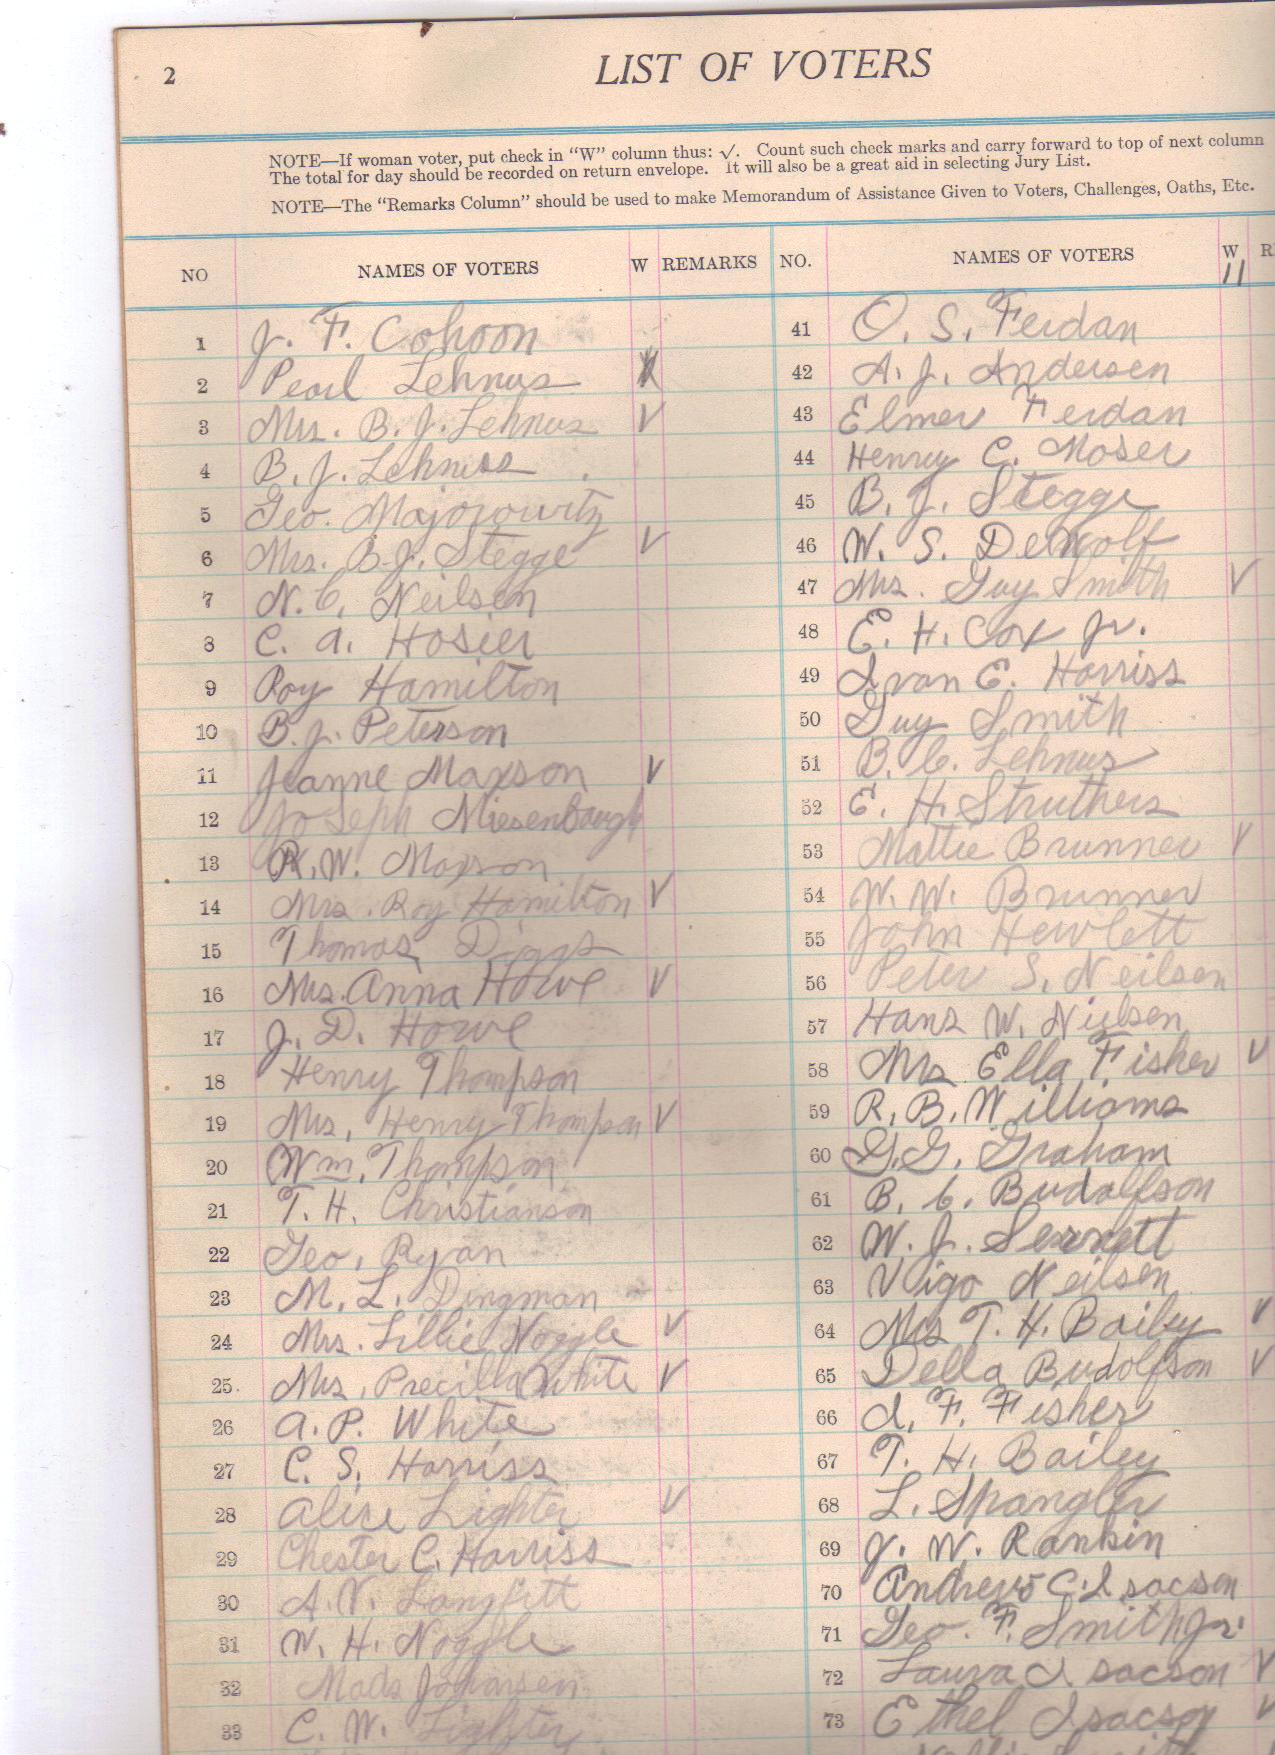 2
LIST OF VOTERS
NOTE—If woman voter, put check in "W" column thus: √. Count such check marks and carry forward to top of next column
The total for day should be recorded on return envelope. It will also be a great aid in selecting Jury List.
NOTE—The "Remarks Column" should be used to make Memorandum of Assistance Given to Voters, Challenges, Oaths, Etc.
NO NAMES OF VOTERS W REMARKS
1 J. F. Cohoon
2 Pearl Lehnus
3 Mrs. B. J. Lehnus √
4 B. J. Lehnus
5 Geo. Majorowitz
6 Mrs. B. J. Stegge √
7 N. C. Neilsen
8 C. A. Hosier
9 Roy Hamilton
10 B. J. Peterson
11 Jeanne Maxson √
12 Joseph Miesenbaugh
13 R. W. Maxson
14 Mrs. Roy Hamilton √
15 Thomas Diggs
16 Mrs. Anna Howe √
17 J. D. Howe
18 Henry Thompson
19 Mrs. Henry Thompson √
20 Wm. Thompson
21 T. H. Christianson
22 Geo. Ryan
23 M. L. Dingman
24 Mrs. Lillie Noggle √
25. Mrs. Precilla White √
26 A. P. White
27 C. S. Harriss
28 Alice Lighter √
29 Chester C. Harriss
30 A. V. Langfitt
31 W. H. Noggle
32 Mads Johansen
33 C. W. Lighter
NO. NAMES OF VOTERS W R
11
41 O. S. Ferdan
42 A. J. Andersen
43 Elmer Ferdan
44 Henry C. Moser
45 B. J. Stegge
46 W. S. Dewolf
47 Mrs. Guy Smith √
48 E. H. Cox Jr.
49 Ivan E. Harriss
50 Guy Smith
51 B. C. Lehnus
52 E. H. Struthers
53 Mattie Brunner √
54 W. W. Brunner
55 John Hewlett
56 Peter S. Neilsen
57 Hans W. Nielsen
58 Mrs Ella Fisher √
59 R. B. Williams
60 G. G. Graham
61 B. C. Budolfson
62 W. J. Sennett
63 Vigo Neilsen
64 Mrs T. H. Bailey √
65 Della Budolfson √
66 A. F. Fisher
67 T. H. Bailey
68 L. Spangler
69 J. W. Rankin
70 Andrew C. Isacson
71 Geo. F. Smith Jr.
72 Laura Isacson √
73 Ethel Isacson √